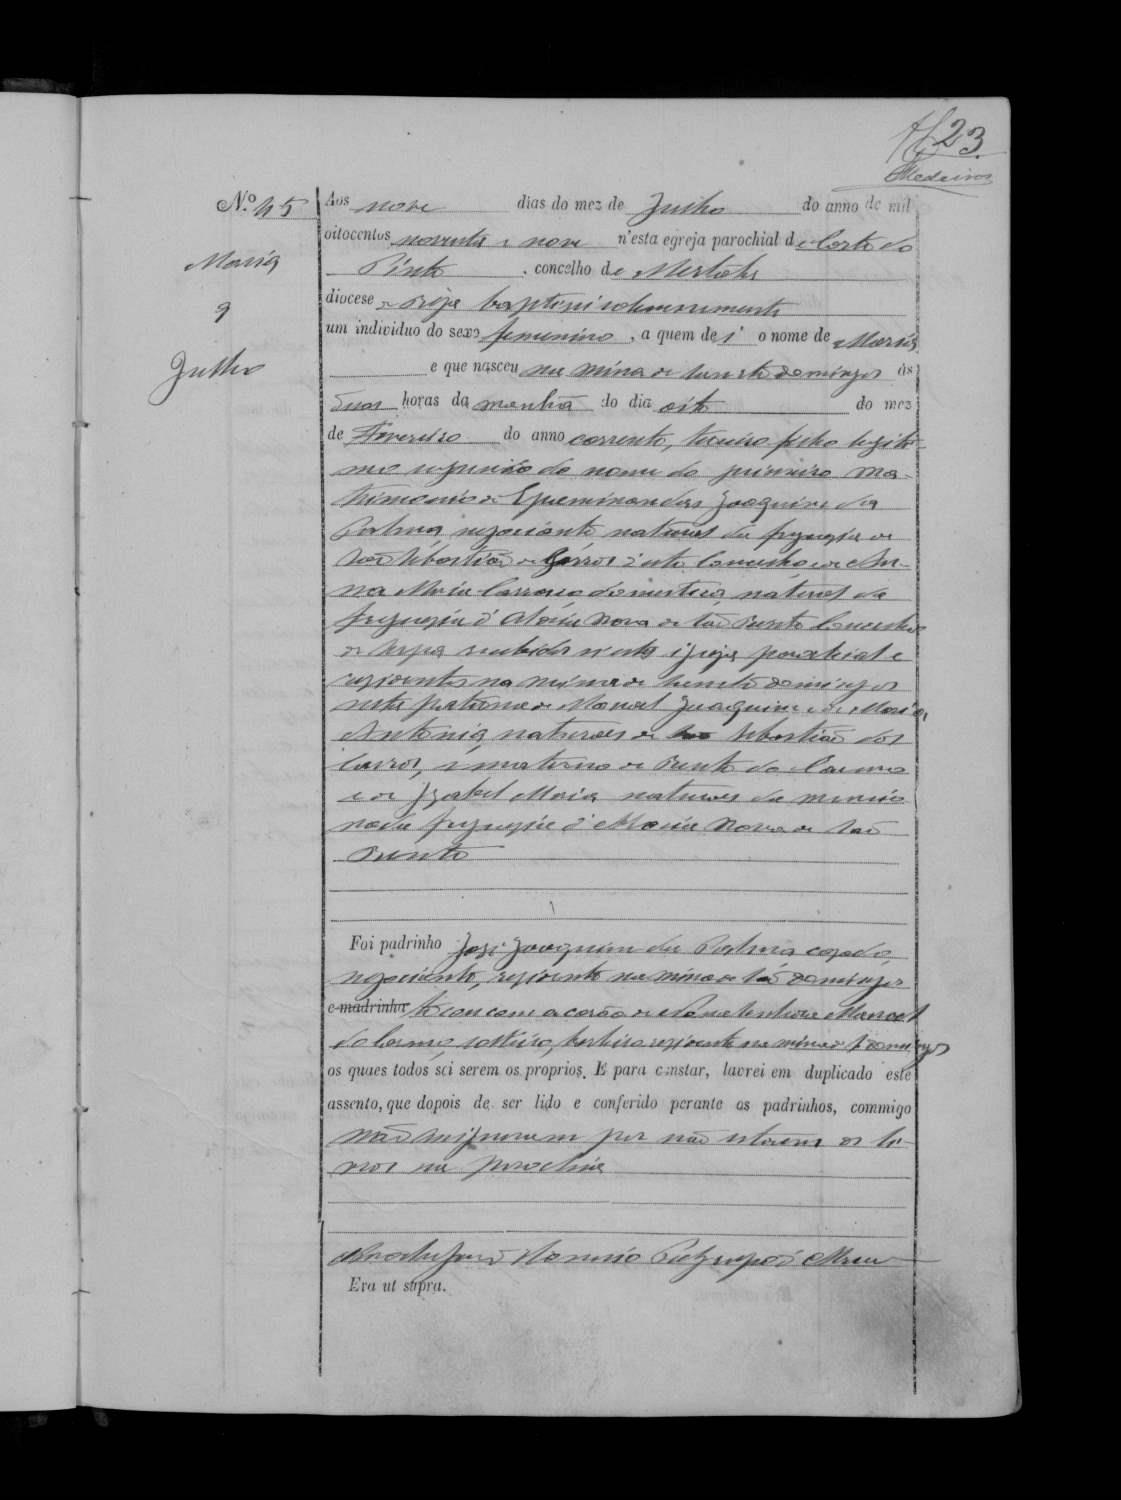 23
Medeiros
Nº 45
Maria
9
Julho
Aos nove dias do mez de Julho do anno de mil
oitocentos noventa e nove n'esta egreja parochial de Corte do
Pinto, concelho de Mertola
diocese de Beja baptisei solemnemente
um individuo do sexo femenino, a quem dei o nome de Maria
e que nasceu na mina de São Domingos ás
duas horas da manhã do dia oito do mez
de Fevereiro do anno corrente, terceiro filho legiti-
mo segundo do nome do primeiro ma-
trimonio de Epaminondas Joaquim da
Palma, negociante, natural da freguesia de
São Sebastião de Carros d'este Concelho e de An-
na Maria domestica, natural da
freguesia d'Aldeia Nova de São Bento Concelho
de Serpa recebidos n'esta igreja parochial e
residentes na mina de São Domingos
neta paterna de Manoel Joaquim e de Maria
Antonia, naturaes de São Sebastião dos
Carros, e materna de Bento do Carmo
e de Izabel Maria naturaes da mencio
nada freguesia d'Aldeia Nova de São
Bento
Foi padrinho José Joaquim da Palma casado,
negociante, residente na mina de São Domingos
e madrinha tocou com a corôa de Nossa Senhora Manoel
do Carmo, solteiro, barbeiro residente na mina de S. Domingos
os quaes todos sei serem os proprios. E para constar, lavrei em duplicado este
assento, que depois de ser lido e conferido perante os padrinhos, commigo
não assignaram por não estarem os li-
vros na parochia
Era ut supra.